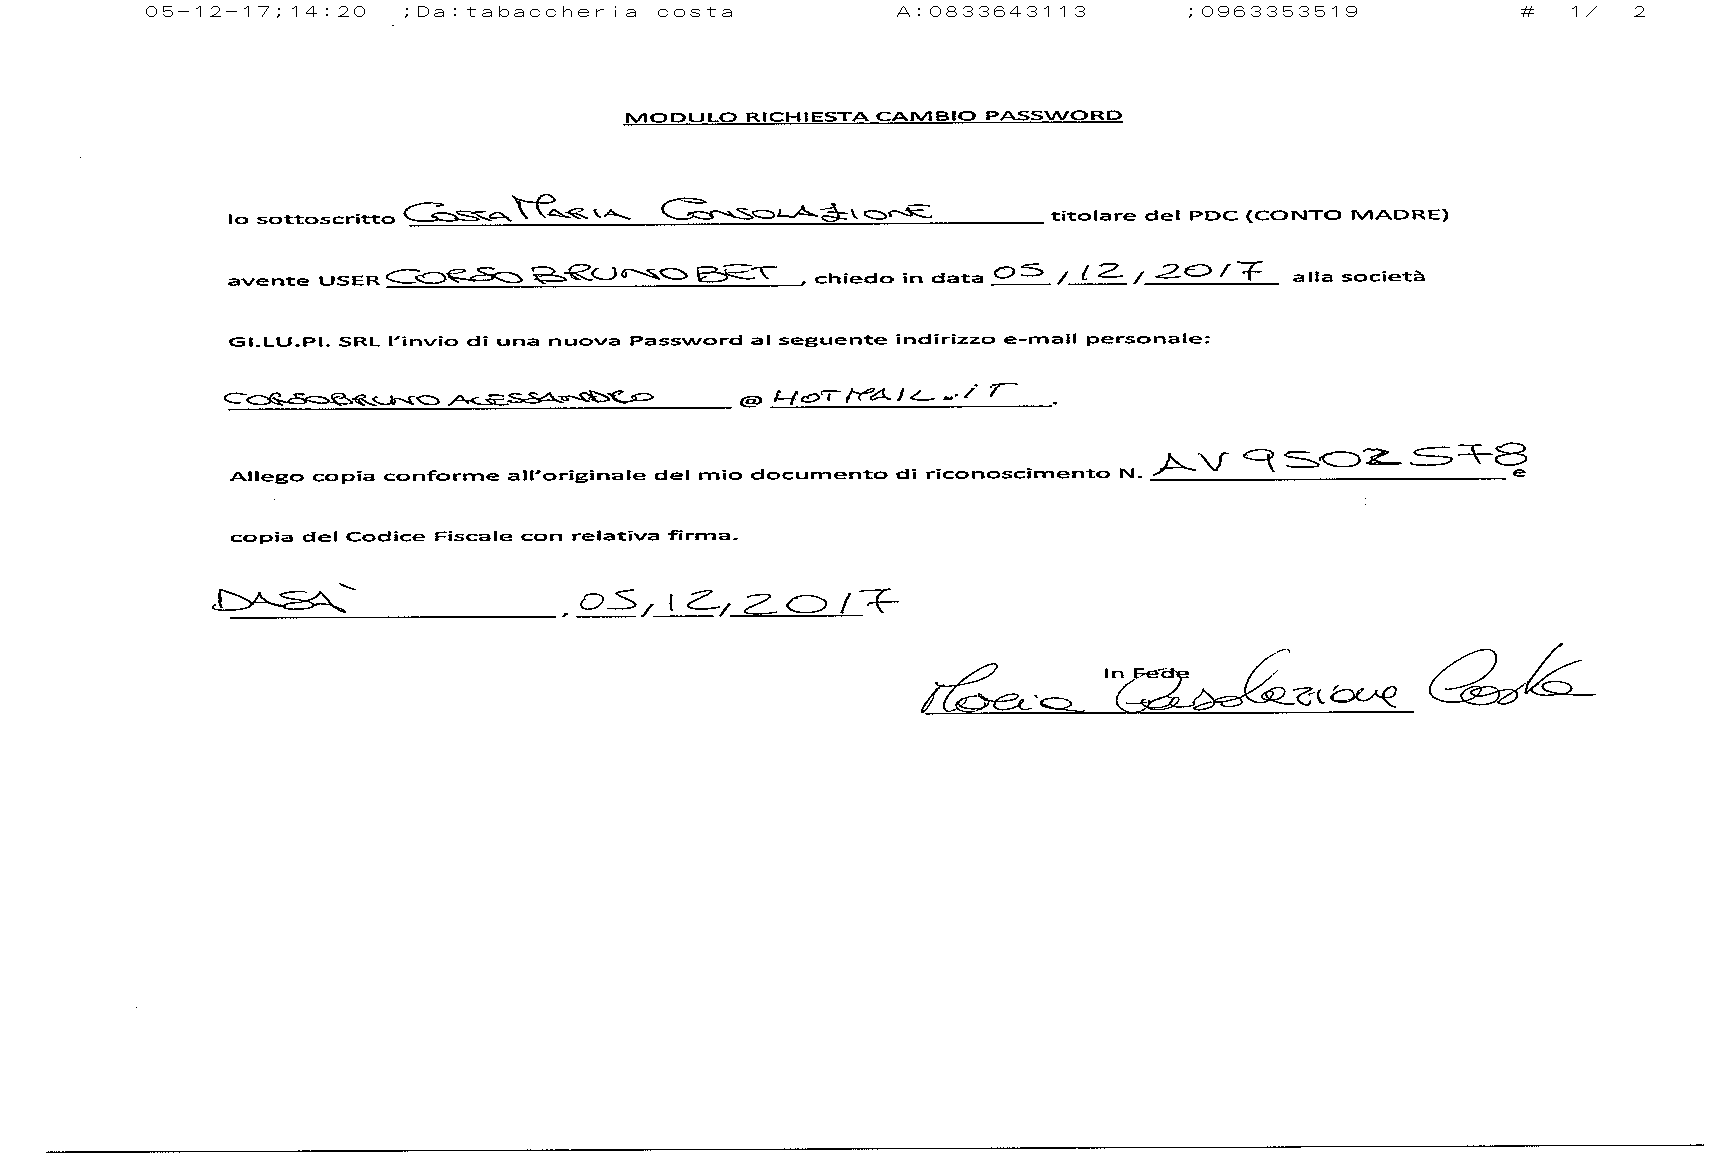 05-12-17;14:20 ;Da:tabaccheria costa A:0833643113 ;0963353519 # 1/ 2
MODULO RICHIESTA CAMBIO PASSWORD
Io sottoscritto COSTA MARIA CONSOLAZIONE titolare del PDC (CONTO MADRE)
avente USER CORSO BRUNO BET, chiedo in data 05/12/2017 alla società
GI.LU.PI. SRL l'invio di una nuova Password al seguente indirizzo e-mail personale:
CORSOBRUNO ALESSANDRO @ HOTMAIL.IT.
Allego copia conforme all'originale del mio documento di riconoscimento N. AV9502578 e
copia del Codice Fiscale con relativa firma.
DASA', 05/12/2017
In Fede
Maria Consolazione Costa